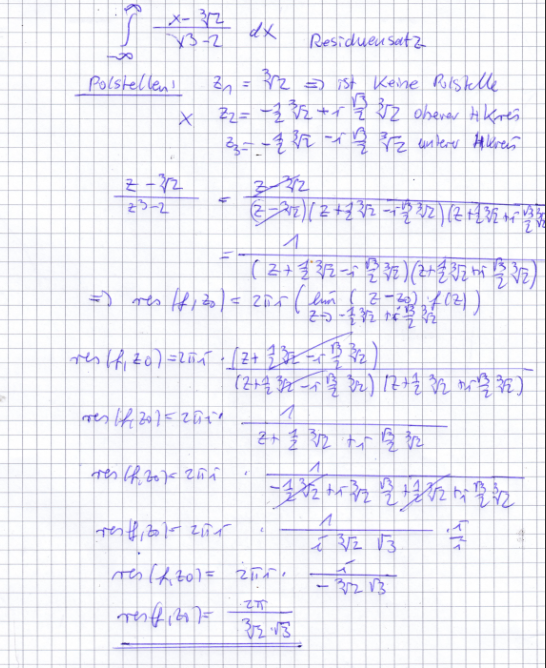 ∫_{-∞}^{∞} (x-∛2)/(√3-2) dx Residuensatz
Polstellen: z₁ = ∛2 => ist keine Polstelle
x z₂ = -1/2 ∛2 + i √3/2 ∛2 oberer HKreis
z₃ = -1/2 ∛2 - i √3/2 ∛2 unterer HKreis
(z-∛2)/(z³-2) = (z-∛2)/((z-∛2)(z+1/2 ∛2 - i √3/2 ∛2)(z+1/2 ∛2 + i √3/2 ∛2))
= 1/((z+1/2 ∛2 - i √3/2 ∛2)(z+1/2 ∛2 + i √3/2 ∛2))
=> res(f,z₀) = 2πi (lim_{z→ -1/2 ∛2 + i √3/2 ∛2} (z-z₀)·f(z))
res(f,z0) = 2πi · (z+1/2 ∛2 - i √3/2 ∛2)/((z+1/2 ∛2 - i √3/2 ∛2)(z+1/2 ∛2 + i √3/2 ∛2))
res(f,z0) = 2πi · 1/(z+1/2 ∛2 + i √3/2 ∛2)
res(f,z0) = 2πi · 1/(-1/2 ∛2 + i ∛2 √3/2 + 1/2 ∛2 + i √3/2 ∛2)
res(f,z0) = 2πi · 1/(i ∛2 √3) · i/i
res(f,z0) = 2πi · i/(-∛2 √3)
res(f,z0) = 2π/(∛2·√3)